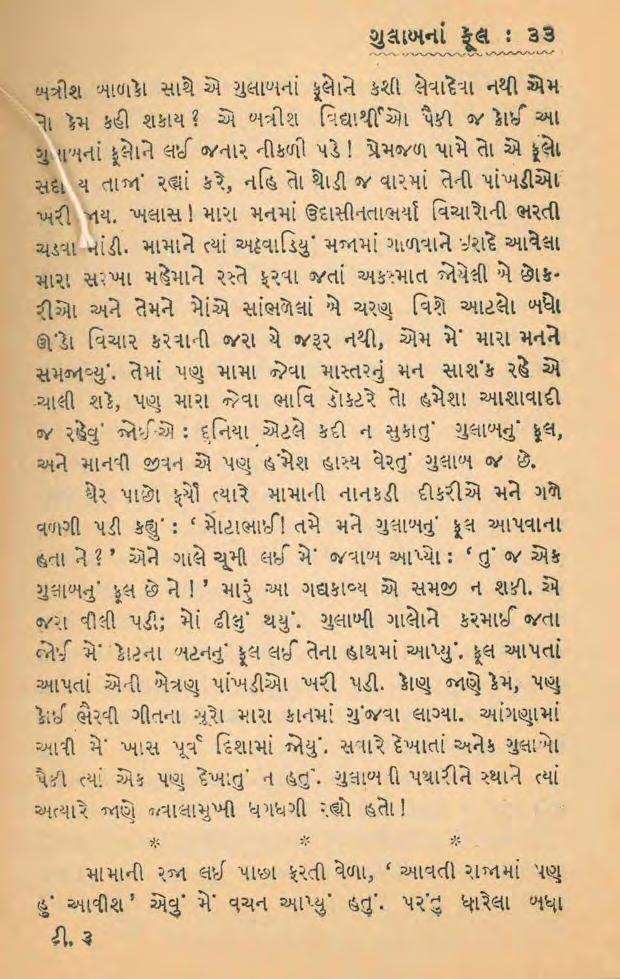 ગુલાબનાં ફૂલ : ૩૩
બત્રીશ બાળકો સાથે એ ગુલાબનાં ફૂલોને કશી લેવાદેવા નથી એમ
તો કેમ કહી શકાય? એ બત્રીશ વિદ્યાર્થીઓ પૈકી જ કોઈ આ
ગુલાબનાં ફૂલોને લઈ જનાર નીકળી પડે! પ્રેમજળ પામે તો એ ફૂલો
સદાય તાજાં રહ્યાં કરે, નહિ તો થોડી જ વારમાં તેની પાંખડીઓ
ખરી જાય. ખલાસ! મારા મનમાં ઉદાસીનતાભર્યા વિચારોની ભરતી
ચડવા માંડી. મામાને ત્યાં અઠવાડિયું મજામાં ગાળવાને ઇરાદે આવેલા
મારા સરખા મહેમાને રસ્તે ફરવા જતાં અકસ્માત જોયેલી બે છોક-
રીઓ અને તેમને મોંએ સાંભળેલાં બે ચરણ વિશે આટલો બધો
ઊંડો વિચાર કરવાની જરા યે જરૂર નથી, એમ મેં મારા મનને
સમજાવ્યું. તેમાં પણ મામા જેવા માસ્તરનું મન સાશંક રહે એ
ચાલી શકે, પણ મારા જેવા ભાવિ ડૉક્ટરે તો હમેશા આશાવાદી
જ રહેવું જોઈએ : દુનિયા એટલે કદી ન સુકાતું ગુલાબનું ફૂલ,
અને માનવી જીવન એ પણ હંમેશ હાસ્ય વેરતું ગુલાબ જ છે.
ઘેર પાછો ફર્યો ત્યારે મામાની નાનકડી દીકરીએ મને ગળે
વળગી પડી કહ્યું : ‘ મોટાભાઈ! તમે મને ગુલાબનું ફૂલ આપવાના
હતા ને?’ એને ગાલે ચૂમી લઈ મેં જવાબ આપ્યો : ‘ તું જ એક
ગુલાબનું ફૂલ છે ને!’ મારું આ ગદ્યકાવ્ય એ સમજી ન શકી. એ
જરા વીલી પડી; મોં ઢીલું થયું. ગુલાબી ગાલોને કરમાઈ જતા
જોઈ મેં કોટના બટનનું ફૂલ લઈ તેના હાથમાં આપ્યું. ફૂલ આપતાં
આપતાં એની બેત્રણ પાંખડીઓ ખરી પડી. કોણ જાણે કેમ, પણ
કોઈ ભૈરવી ગીતના સૂરો મારા કાનમાં ગુંજવા લાગ્યા. આંગણામાં
આવી મેં ખાસ પૂર્વ દિશામાં જોયું. સવારે દેખાતાં અનેક ગુલાબો
પૈકી ત્યાં એક પણ દેખાતું ન હતું. ગુલાબની પથારીને સ્થાને ત્યાં
અત્યારે જાણે જ્વાલામુખી ધગધગી રહ્યો હતો!
* * *
મામાની રજા લઈ પાછા ફરતી વેળા, ‘ આવતી રાજામાં પણ
હું આવીશ’ એવું મેં વચન આપ્યું હતું. પરંતુ ધારેલા બધા
ટી. ૩